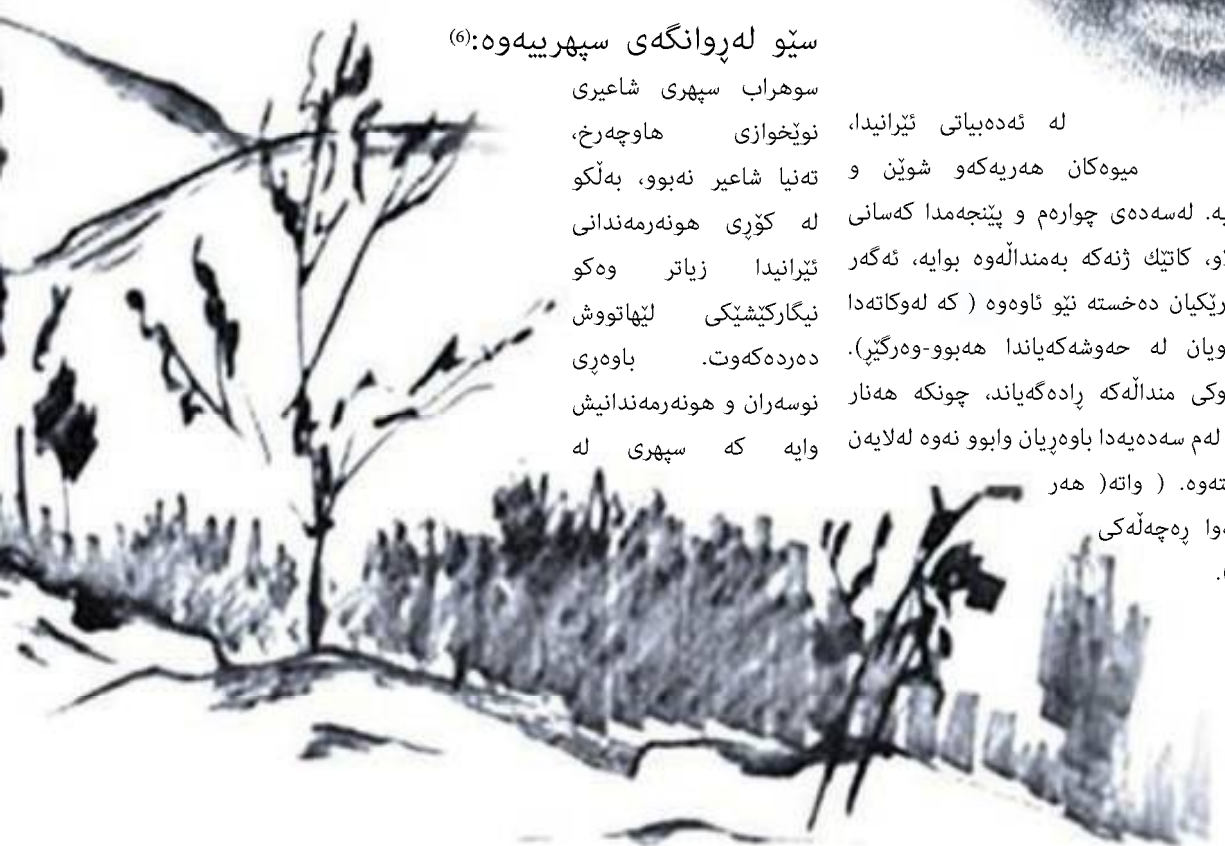 له ئەدەبیاتی ئێرانیدا،
میوەکان هەریەکەو شوێن و
لەسەدەی چوارەم و پێنجەمدا کەسانی
کاتێك ژنەکە بەمنداڵەوە بوایە، ئەگەر
دەخستە نێو ئاوەوە ( کە لەوکاتەدا
لە حەوشەکەیاندا هەبوو-وەرگێڕ).
منداڵەکە ڕادەگەیاند، چونکە هەنار
لەم سەدەیەدا باوەڕیان وابوو نەوە لەلایەن
( واتە( هەر
ڕەچەڵەکی
سێو لەڕوانگەی سپهرییەوە:(6)
سوهراب سپهری شاعیری
نوێخوازی هاوچەرخ،
تەنیا شاعیر نەبوو، بەڵکو
لە کۆڕی هونەرمەندانی
ئێرانیدا زیاتر وەکو
نیگارکێشێکی لێهاتووش
دەردەکەوت. باوەڕی
نوسەران و هونەرمەندانیش
وایە کە سپهری لە